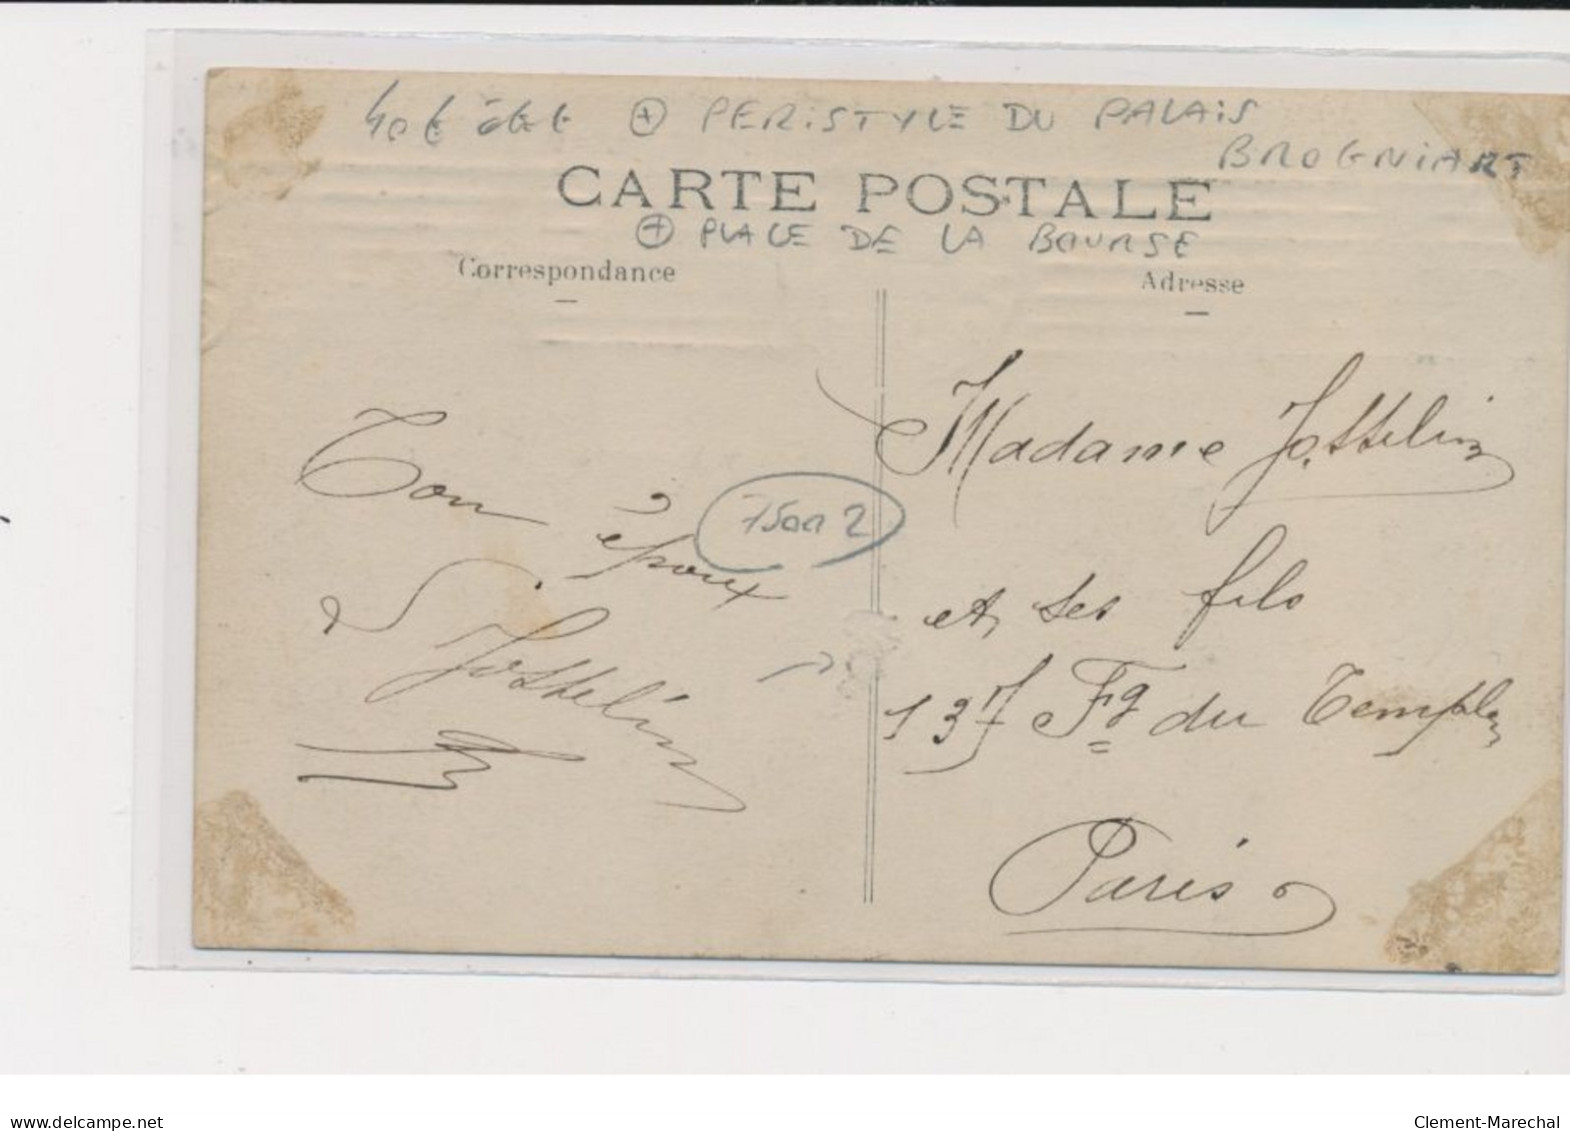 40€ ⊕ PERISTYLE DU PALAIS
BROGNIART
CARTE POSTALE
⊕ PLACE DE LA BOURSE
Correspondance
Adresse
Madame Josselin
et ses fils
137 Fg du Temple
Paris
Ton
époux
Josselin
75002
www.delcampe.net
Clement-Marechal